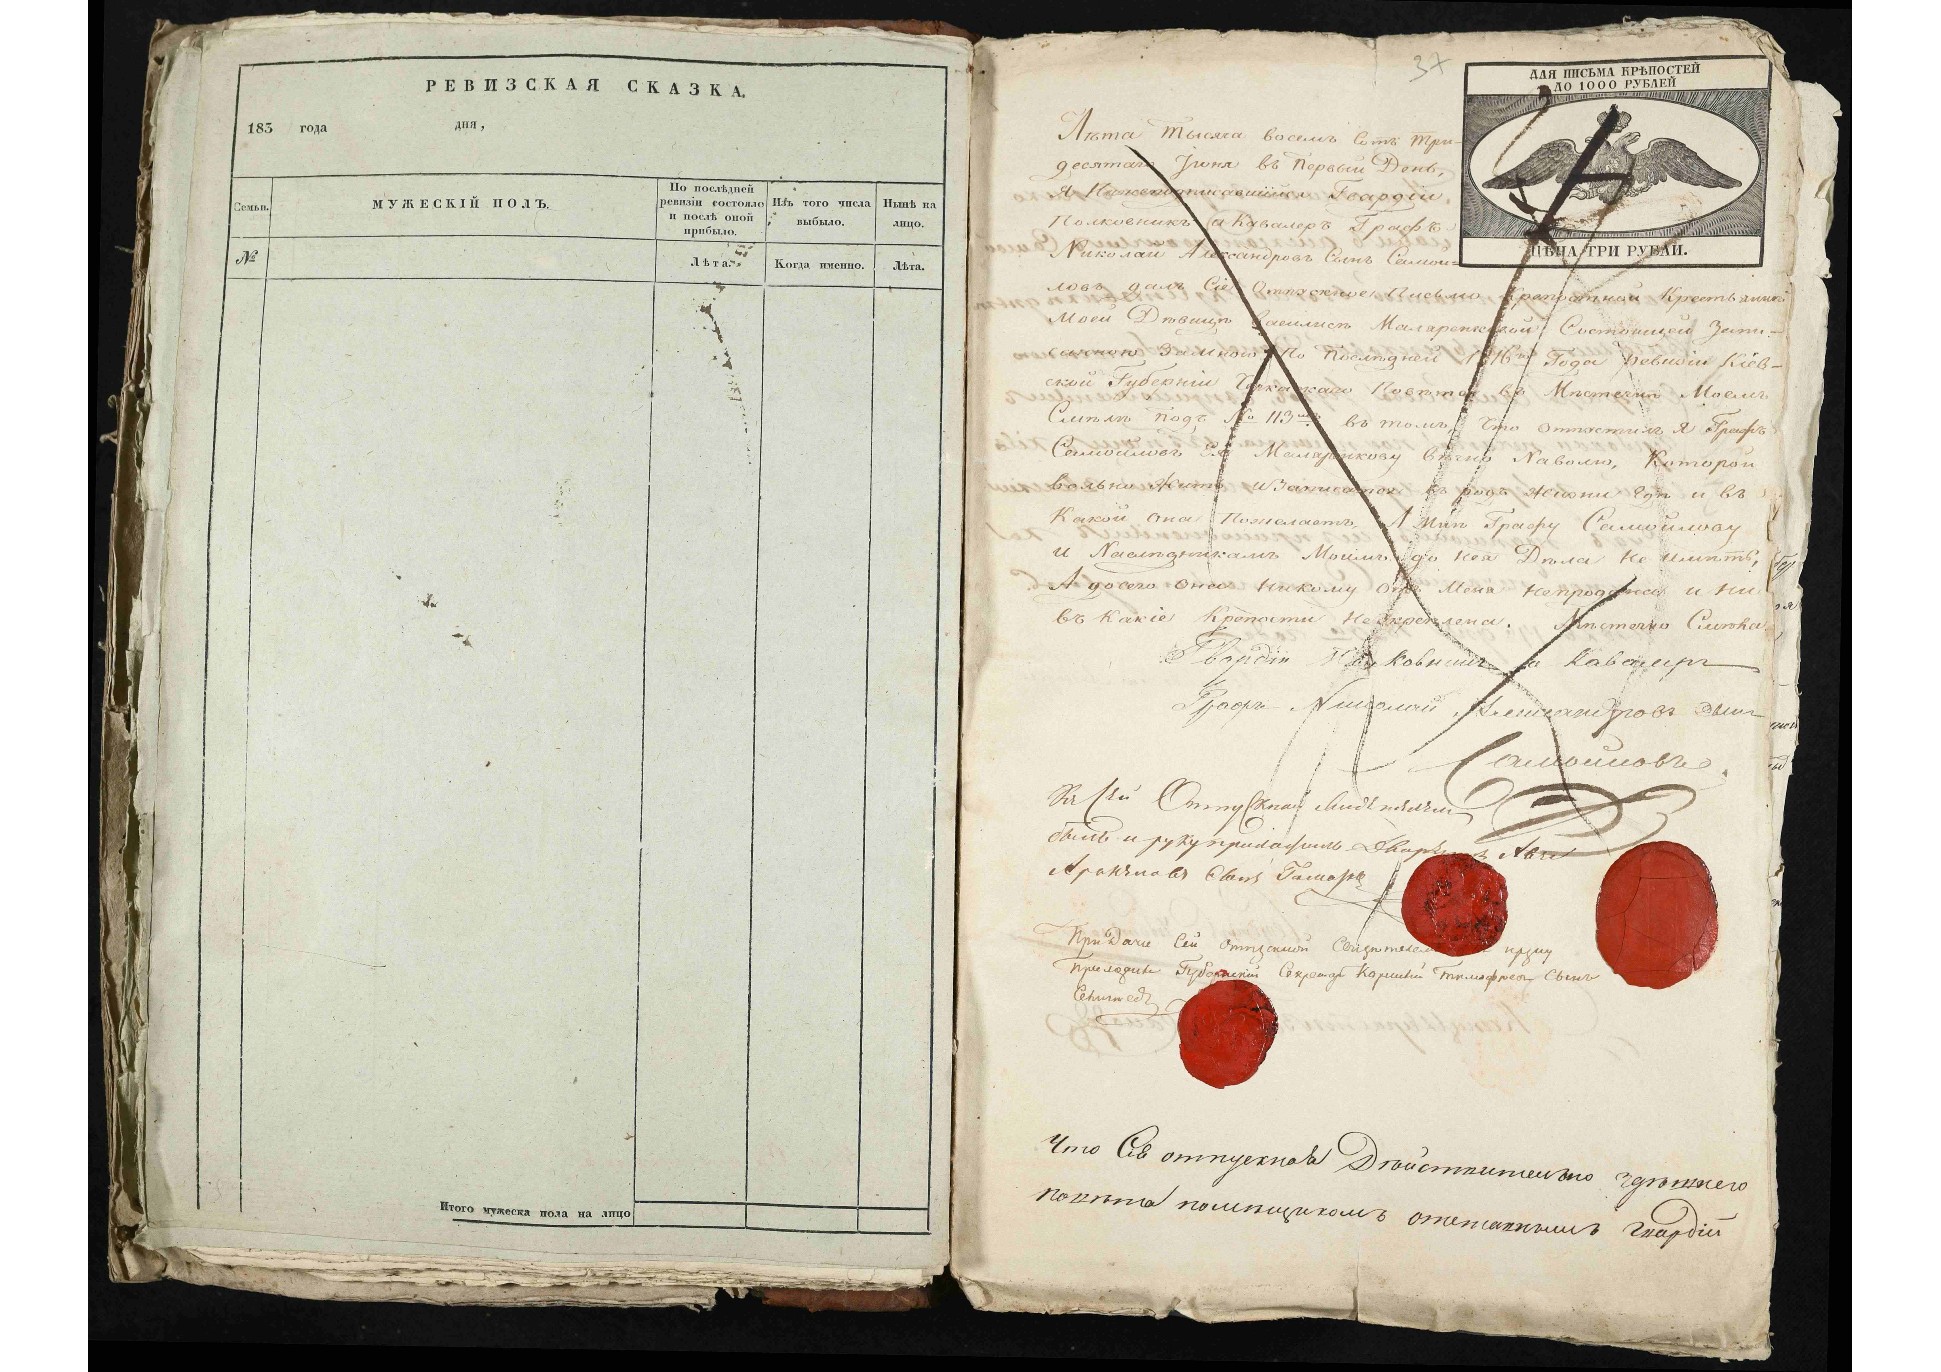 РЕВИЗСКАЯ СКАЗКА.
183 года дня,
Семьи.
МУЖЕСКІЙ ПОЛЪ.
По послѣдней
ревизіи состояло
и послѣ оной
прибыло.
Изъ того числа
выбыло.
Нынѣ на
лицо.
№
Лѣта.
Когда именно.
Лѣта.
Итого мужеска пола на лицо
37
ДЛЯ ПИСЬМА КРѢПОСТЕЙ
ДО 1000 РУБЛЕЙ
ЦѢНА ТРИ РУБЛИ.
Лѣта Тысяча восемь Сотъ Три-
десятаго Іюня въ Первый День,
Я Нижеподписавшійся Гвардіи
Полковникъ и Кавалеръ Графъ
Николай Александровъ Сынъ Самои-
ловъ далъ Сіе Отпускное Письмо Крепостной Крестьянке
Моей Дѣвицѣ Василисѣ Маляренковой Состоящей Запи-
санною Замною По Послѣдней 1816 Года ревизіи Кіев-
ской Губерніи Черкаскаго Повѣта въ Мѣстечкѣ Моемъ
Смѣлѣ подъ № 113 въ томъ, Что отпустилъ я Графъ
Самоиловъ Ея Маляренкову вѣчно Наволю, Которой
вольно Жить и Записатся въ родъ жизни гдѣ и въ
Какой она Пожелаетъ, А мнѣ Графу Самойлову
и Наслѣдникамъ Моимъ до Нея Дѣла Не имѣть,
А до сего онеа Никому отъ Меня Непродана и Ни
въ Какіе Крепости Неукреплена. Мѣстечко Смѣла
Гвардіи Полковникъ и Кавалеръ
Графъ Николай Александровъ Сынъ
Самойловъ
Къ Сей Отпускной Свидѣтелем
былъ и руку приложилъ
сынъ
При Даче Сей отпускной Свидетелем и руку
приложилъ Губернский Секретарь Тимофеевъ Сынъ
Что Сія отпускная Дѣйствительно здѣшнего
повѣта помѣщикомъ отставнымъ Гвардіи